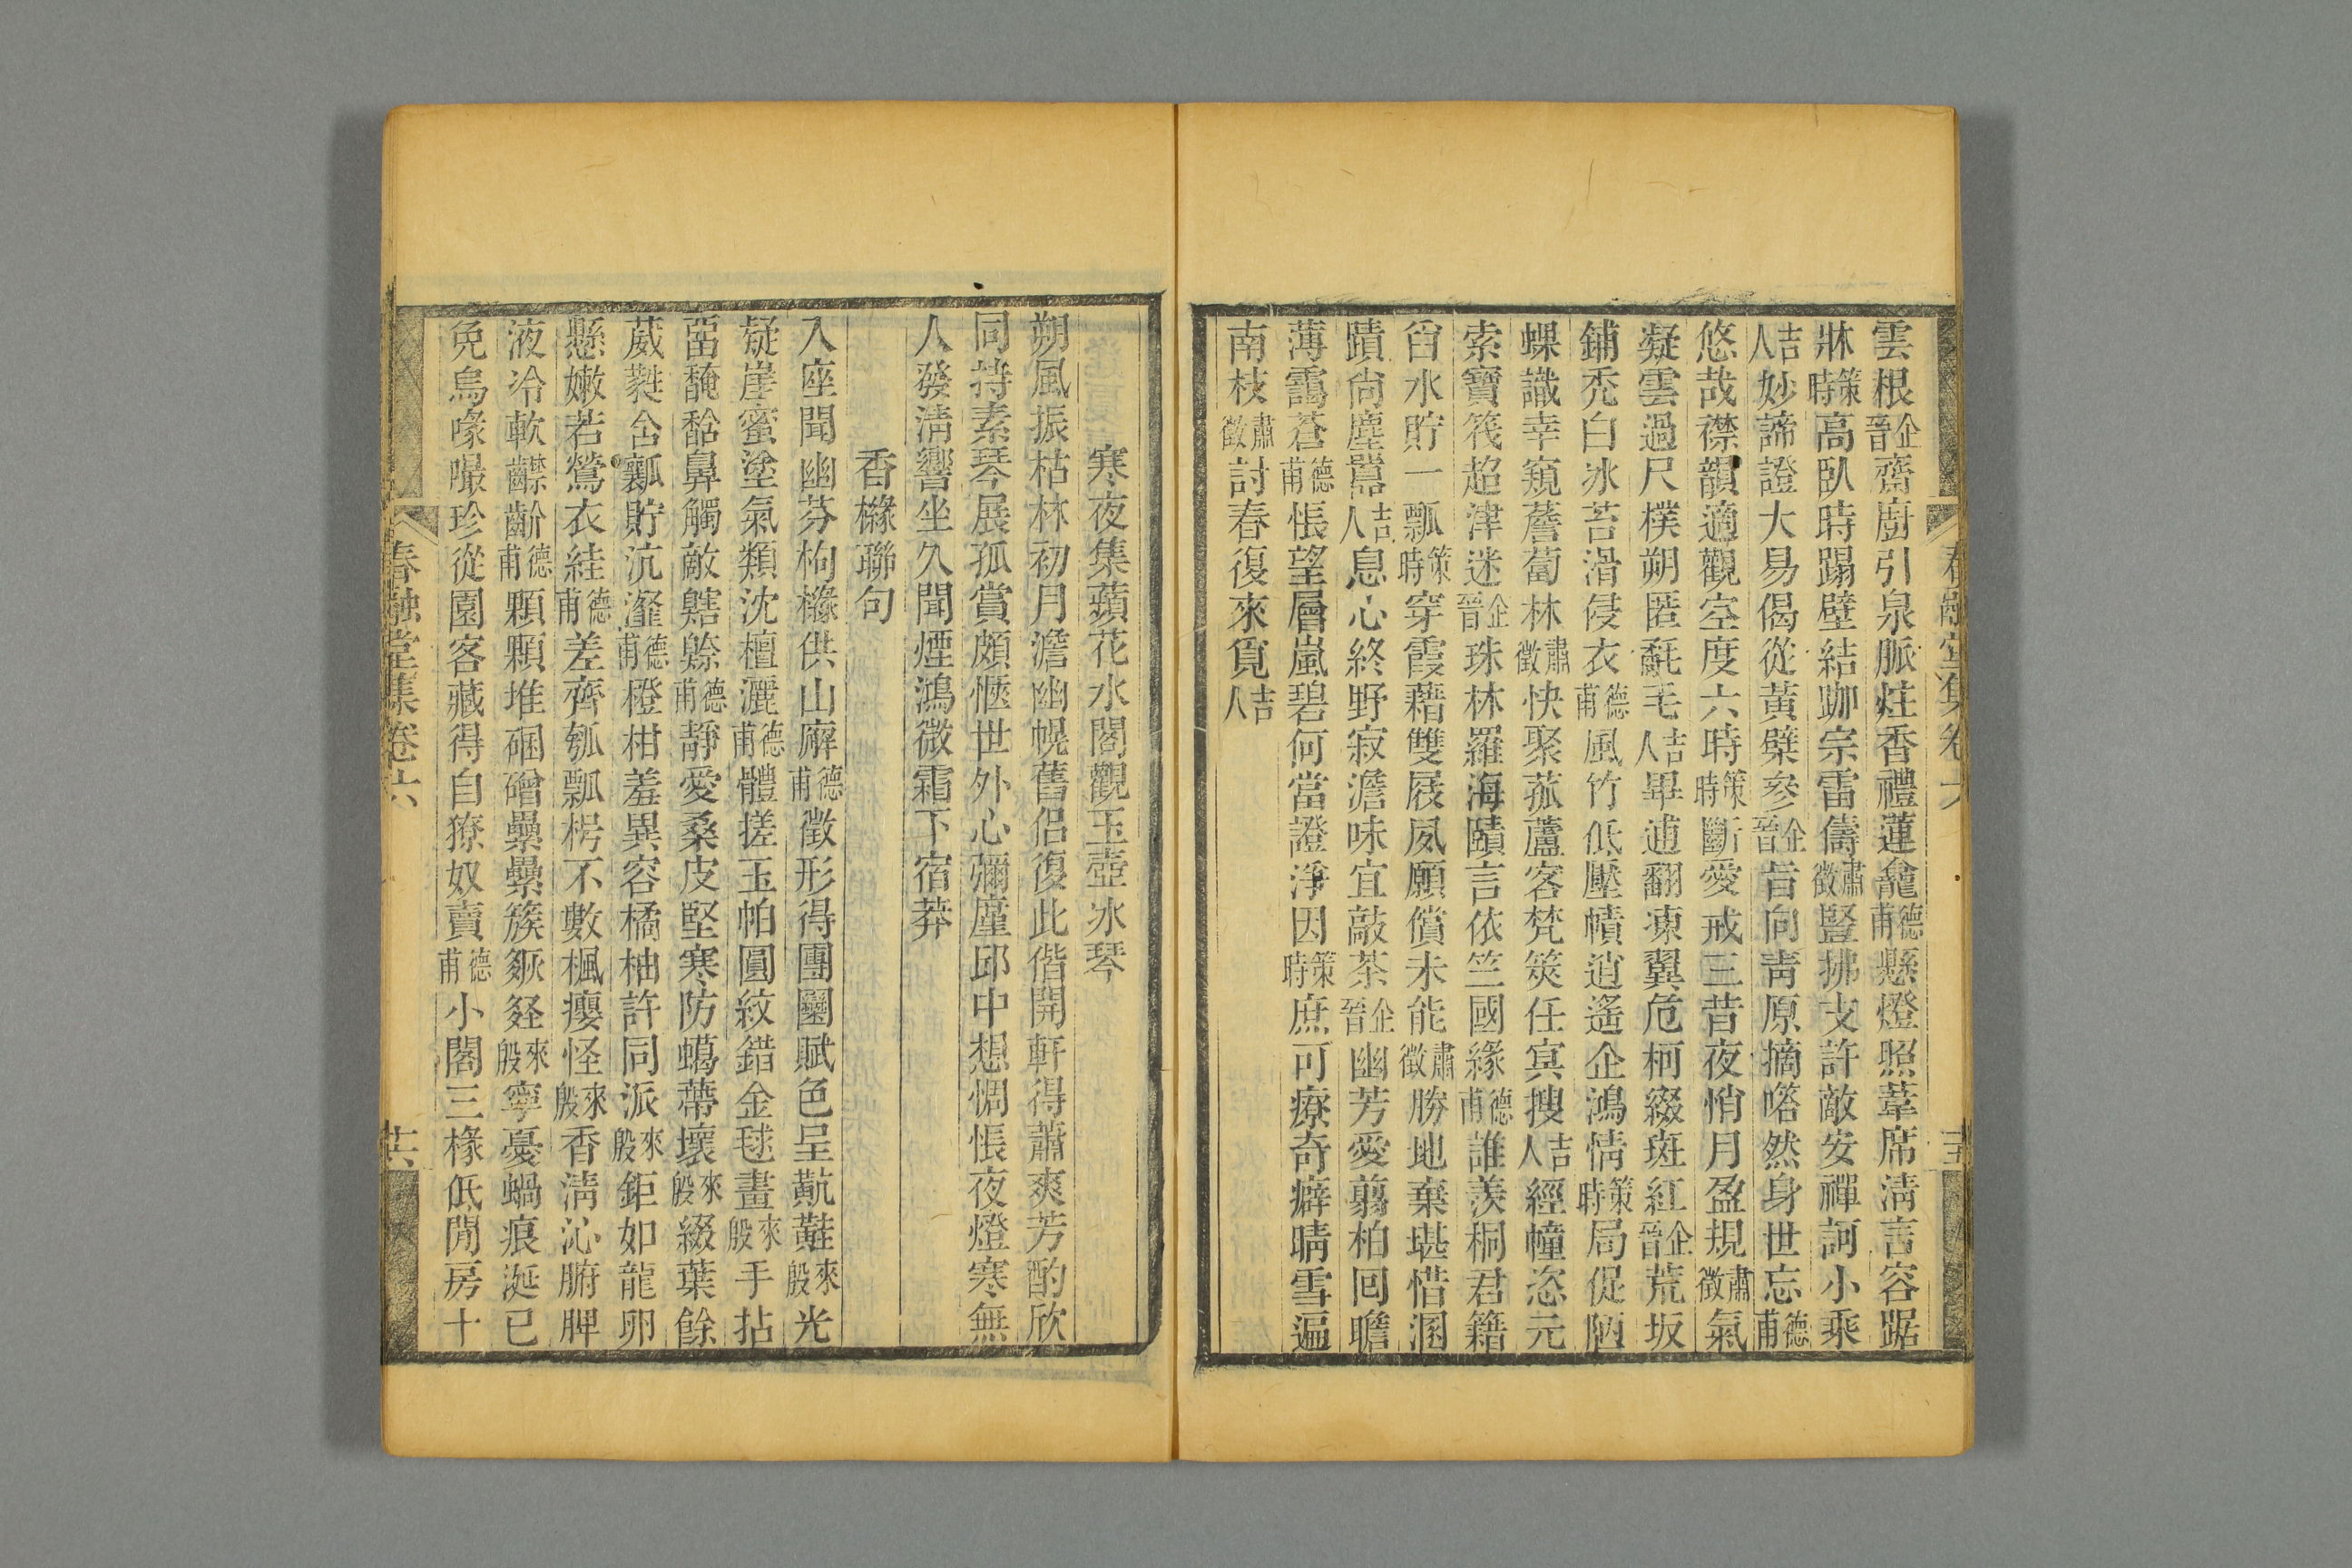 雲根企晉齋廚引泉脈炷香禮蓮龕德甫懸燈照葦席淸言容踞
牀策時高臥時蹋壁結跏宗雷儔肅徵豎拂支許敵安禪訶小乘
吉人妙諦證大易偈從黃檗參企晉旨向靑原摘嗒然身世忘德甫
悠哉襟韻適觀空度六時策時斷愛戒三昔夜悄月盈規肅徵氣
凝雲過尺樸朔匿毳毛吉人畢逋翻凍翼危柯綴斑紅企晉荒坂
鋪禿白冰苔滑侵衣德甫風竹低壓幘逍遙企鴻情策時局促陋
蜾識幸窺薝蔔林肅徵快聚菰蘆客梵筴任冥搜吉人經幢恣元
索寶筏超津迷企晉珠林羅海賾言依竺國緣德甫誰羨桐君籍
臼水貯一瓢策時穿霞藉雙屐夙願償未能肅徵勝地棄堪惜溷
蹟尙塵囂吉人息心終野寂澹味宜敲茶企晉幽芳愛翦柏回瞻
薄靄蒼德甫悵望層嵐碧何當證淨因策時庶可療奇癖晴雪遍
南枝肅徵討春復來覓吉人
春融堂集卷六
寒夜集蘋花水閣觀玉壺冰琴
朔風振枯林初月澹幽幌舊侶復此偕開軒得蕭爽芳酌欣
同持素琴展孤賞頗愜世外心彌廑邱中想惆悵夜燈寒無
人發淸響坐久聞煙鴻微霜下宿莽
香櫞聯句
入座聞幽芬枸櫞供山廨德甫徵形得團圞賦色呈黈䵮來殷光
疑崖蜜塗氣類沈檀灑德甫體搓玉帕圓紋錯金毬畫來殷手拈
罯馣馠鼻觸敵䶎䶐德甫靜愛桑皮堅寒防蝎蔕壞來殷綴葉餘
葳蕤含瓤貯沆瀣德甫橙柑羞異容橘柚許同派來殷鉅如龍卵
懸嫩若鶯衣絓德甫差齊瓠瓢枵不數楓癭怪來殷香淸沁腑脾
液冷軟齼齘德甫顆顆堆硱磳纍纍簇䂃䂪來殷寧憂蝸痕涎已
免烏喙嘬珍從園客藏得自獠奴賣德甫小閣三椽低閒房十
春融堂集卷六